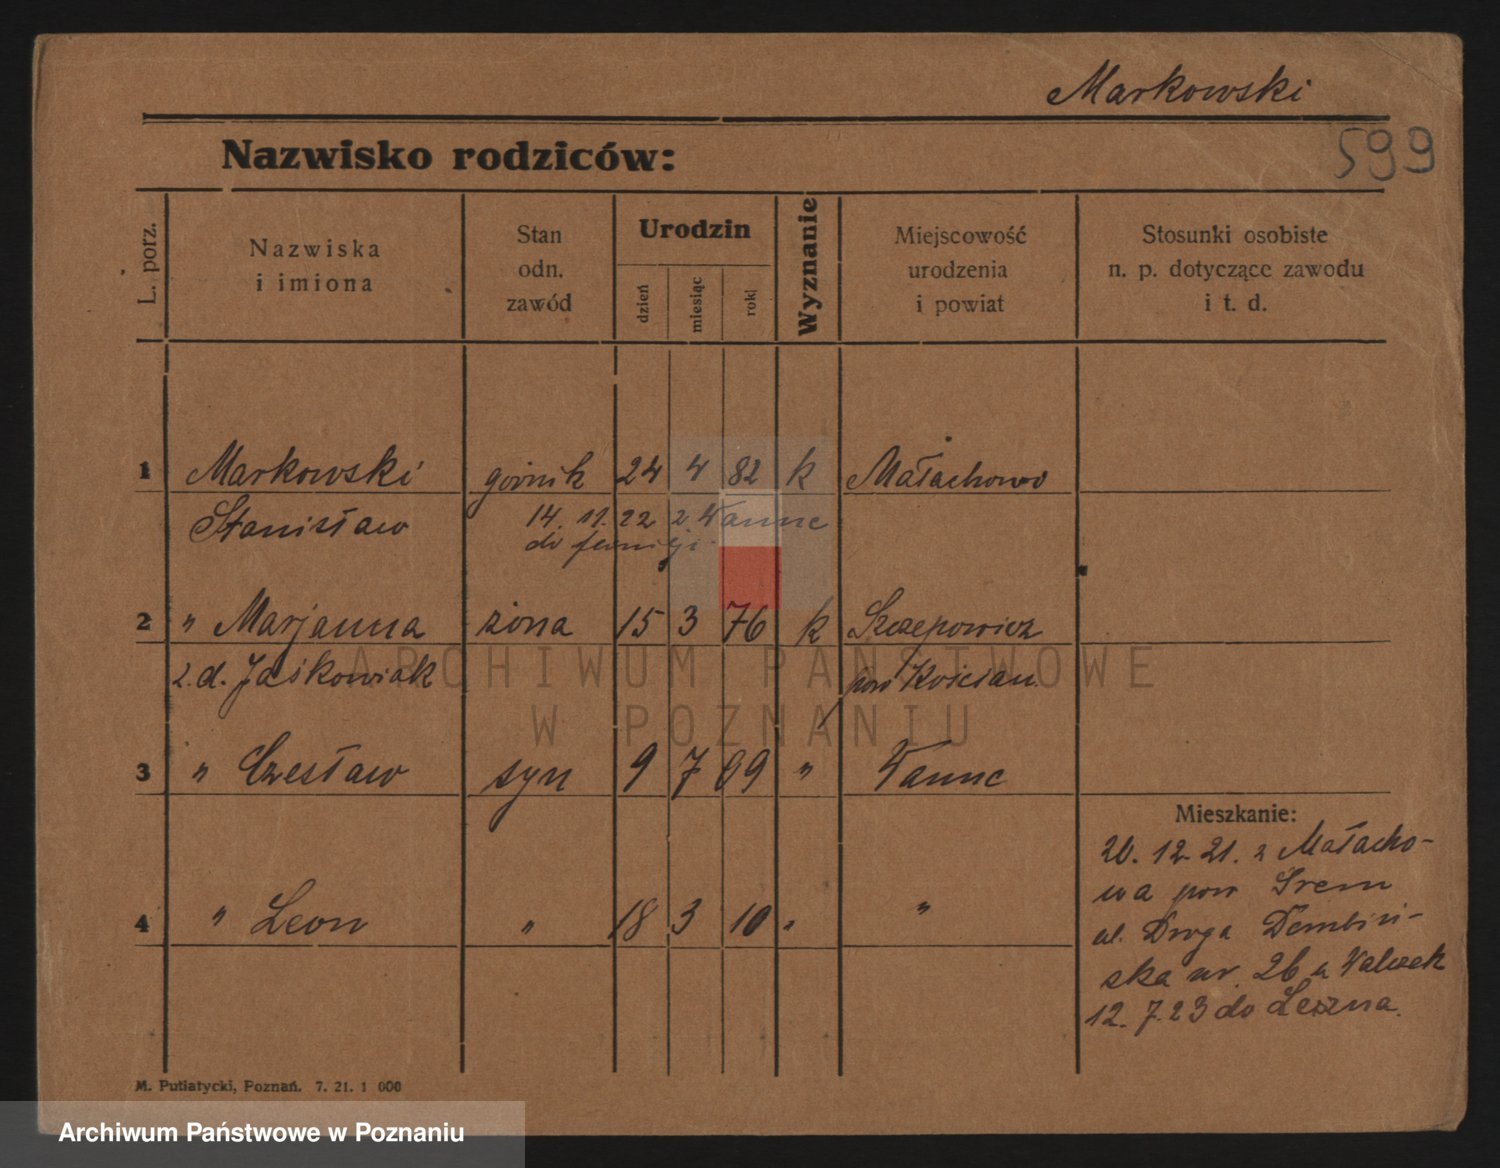 Markowski
599
Nazwisko rodziców:
L. porz.
Nazwiska
i imiona
Stan
odn.
zawód
Urodzin
dzień
miesiąc
rok
Wyznanie
Miejscowość
urodzenia
i powiat
Stosunki osobiste
n. p. dotyczące zawodu
i t. d.
1 Markowski górnik 24 4 82 k Małachowo
Stanisław 14. 11. 22 z Wanne
do
2 " Marjanna żona 15 3 76 k Szczepowice
z. d. Jaśkowiak pow Kościan
ARCHIWUM PAŃSTWOWE
W POZNANIU
3 " Czesław syn 9 7 09 " Wanne
4 " Leon " 18 3 10 " "
Mieszkanie:
20. 12. 21. z Małacho-
wa pow Śrem
ul. Droga Dembiń-
ska nr. 26 u
12. 7. 23 do Leszna.
M. Putiatycki, Poznań. 7. 21. 1 000
Archiwum Państwowe w Poznaniu